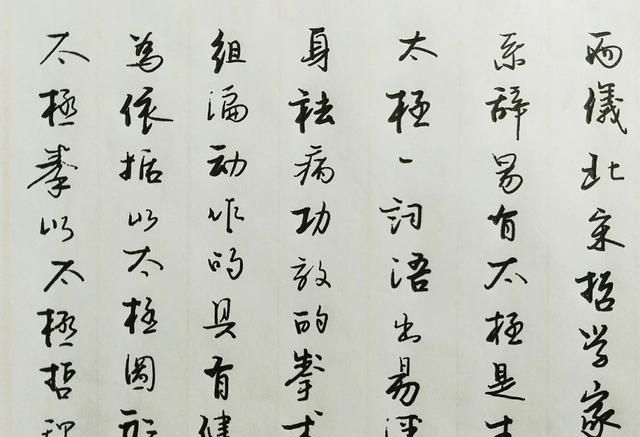 太極拳以太極哲理
為依据以太极圖形
组编动作的具有健
身祛病功效的拳术
太极一词语出易经
系辞易有太极是生
两儀北宋哲学家